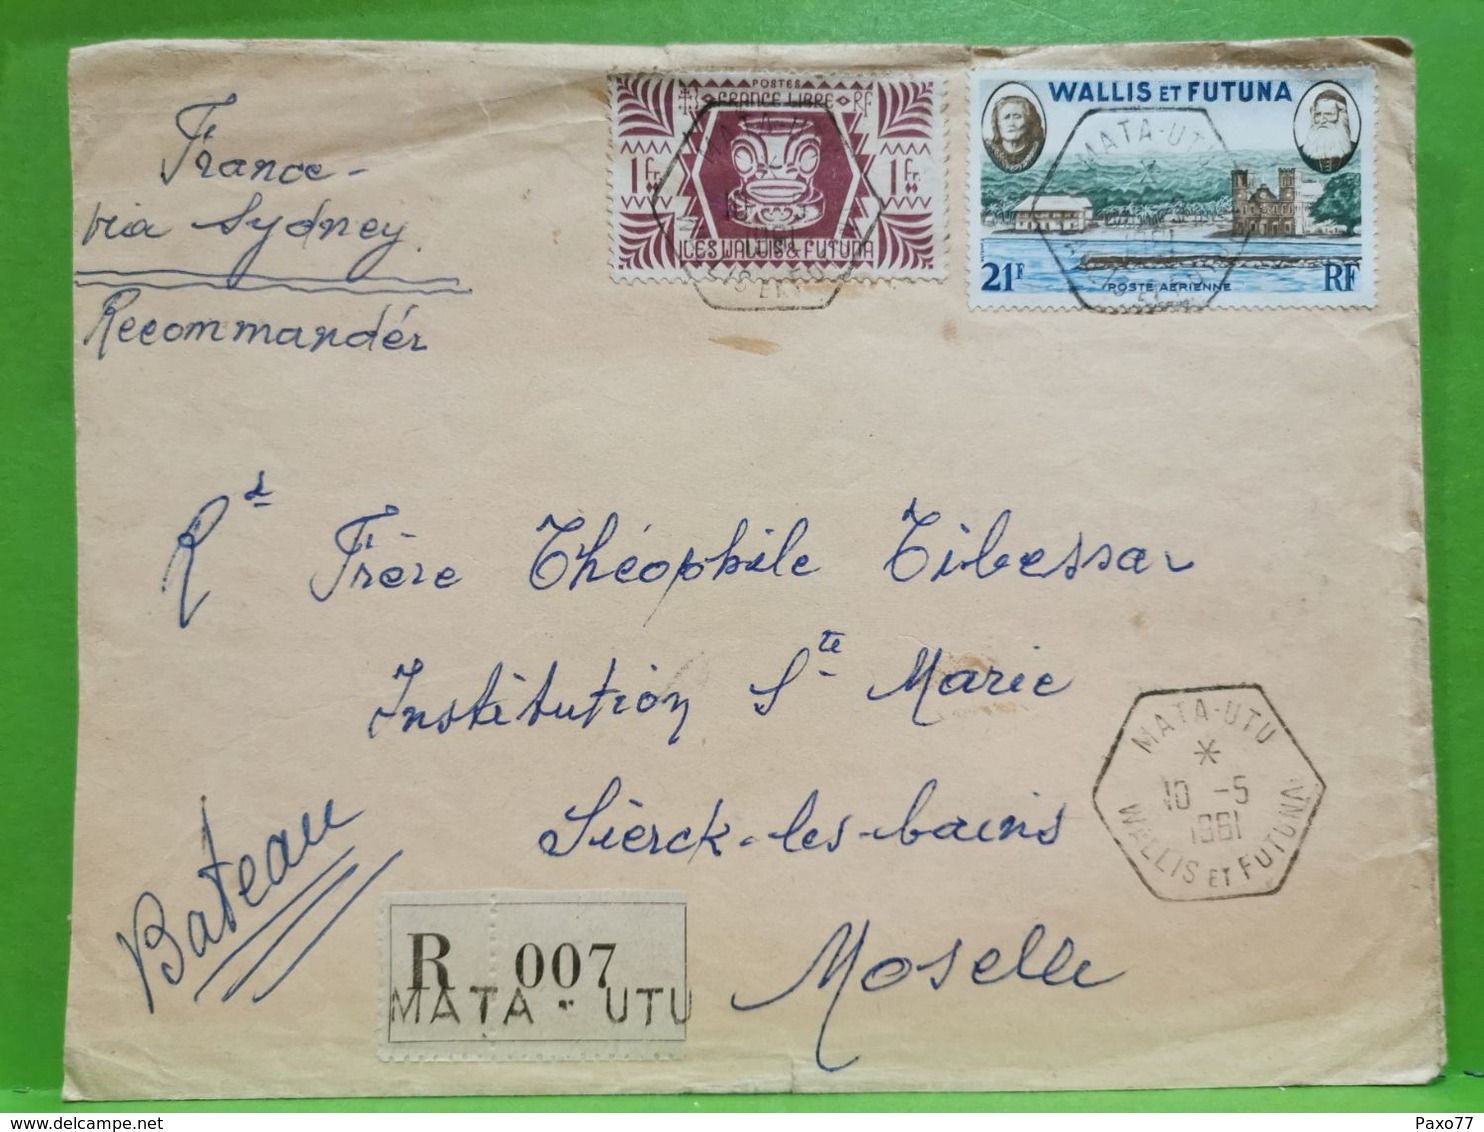 France -
via Sydney.
Recommandér
POSTES
FRANCE LIBRE RF
1 Fr. 1 Fr.
ILES WALLIS & FUTUNA
WALLIS ET FUTUNA
21F POSTE AERIENNE RF
MATA-UTU
MATA-UTU
Rd Frère Théophile Tibessar
Institution Ste Marie
Sierck-les-bains
Moselle
MATA-UTU
10 -5
1961
WALLIS ET FUTUNA
Bateau
R 007
MATA - UTU
Paxo77